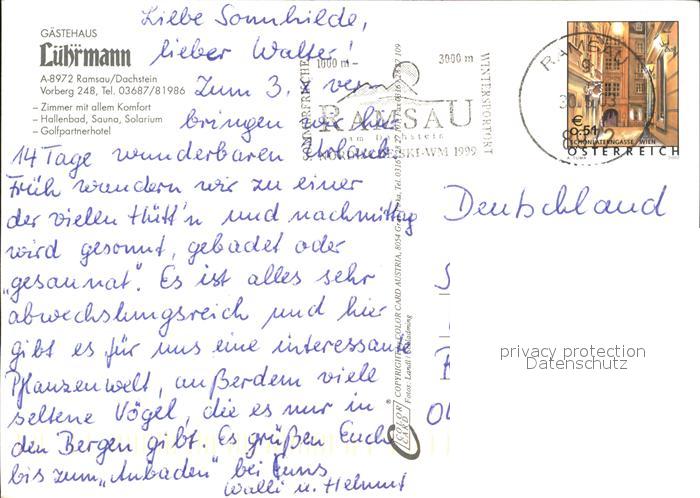 GÄSTEHAUS
Lührmann
A-8972 Ramsau/Dachstein
Vorberg 248, Tel. 03687/81986
– Zimmer mit allem Komfort
– Hallenbad, Sauna, Solarium
– Golfpartnerhotel
Liebe Sonnhilde,
lieber Walter!
Zum 3. x ver-
bringen wir hier
14 Tage wunderbaren Urlaub.
Früh wandern wir zu einer
der vielen Hütt'n und nachmittag
wird gesonnt, gebadet oder
"gesaunat". Es ist alles sehr
abwechslungsreich und hier
gibt es für uns eine interessante
Pflanzenwelt, außerdem viele
seltene Vögel, die es nur in
den Bergen gibt. Es grüßen Euch
bis zum "Anbaden" bei uns
Walli u. Helmut
1000 m – 3000 m
SOMMERFRISCHE
WINTERSPORTORT
RAMSAU
am Dachstein
NORDISCHE SKI-WM 1999
RAMSAU
€ 0,51
SCHÖNLATERNGASSE, WIEN
ÖSTERREICH
Deutschland
COPYRIGHT by COLOR CARD AUSTRIA, 8054 Graz
privacy protection
Datenschutz